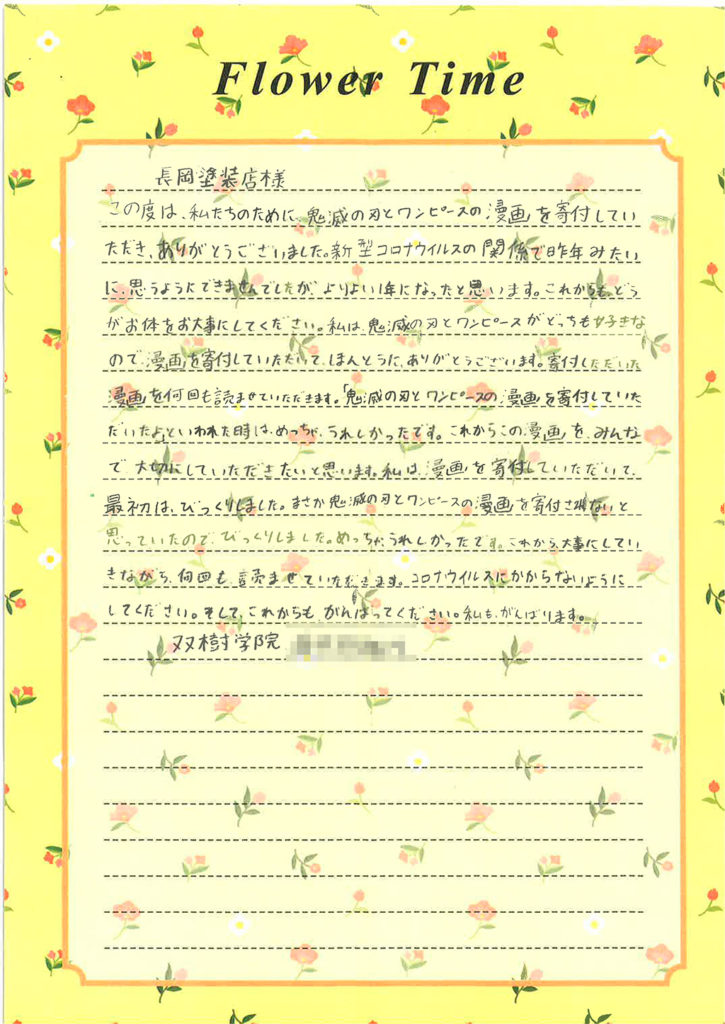 Flower Time
長岡塗装店様
この度は、私たちのために、鬼滅の刃とワンピースの漫画を寄付してい
ただき、ありがとうございました。新型コロナウイルスの関係で昨年みたい
に、思うようにできませんでしたが、よりよい1年になったと思います。これからも、どう
がお体をお大事にしてください。私は、鬼滅の刃とワンピースがどっちも好きな
ので、漫画を寄付していただいて、ほんとうに、ありがとうございます。寄付しただいた
漫画を何回も読ませていただきます。「鬼滅の刃とワンピースの漫画を寄付していた
だいたよ」といわれた時は、めっちゃ、うれしかったです。これからこの漫画を、みんな
で大切にしていただきたいと思います。私は、漫画を寄付していただいて、
最初は、びっくりしました。まさか鬼滅の刃とワンピースの漫画を寄付されないと
思っていたので、びっくりしました。めっちゃ、うれしかったです。これから、大事にしてい
きながら、何回も、読ませていただきます。コロナウイルスにかからないように
してください。そして、これからも がんばってください。私も、がんばります。
双樹学院